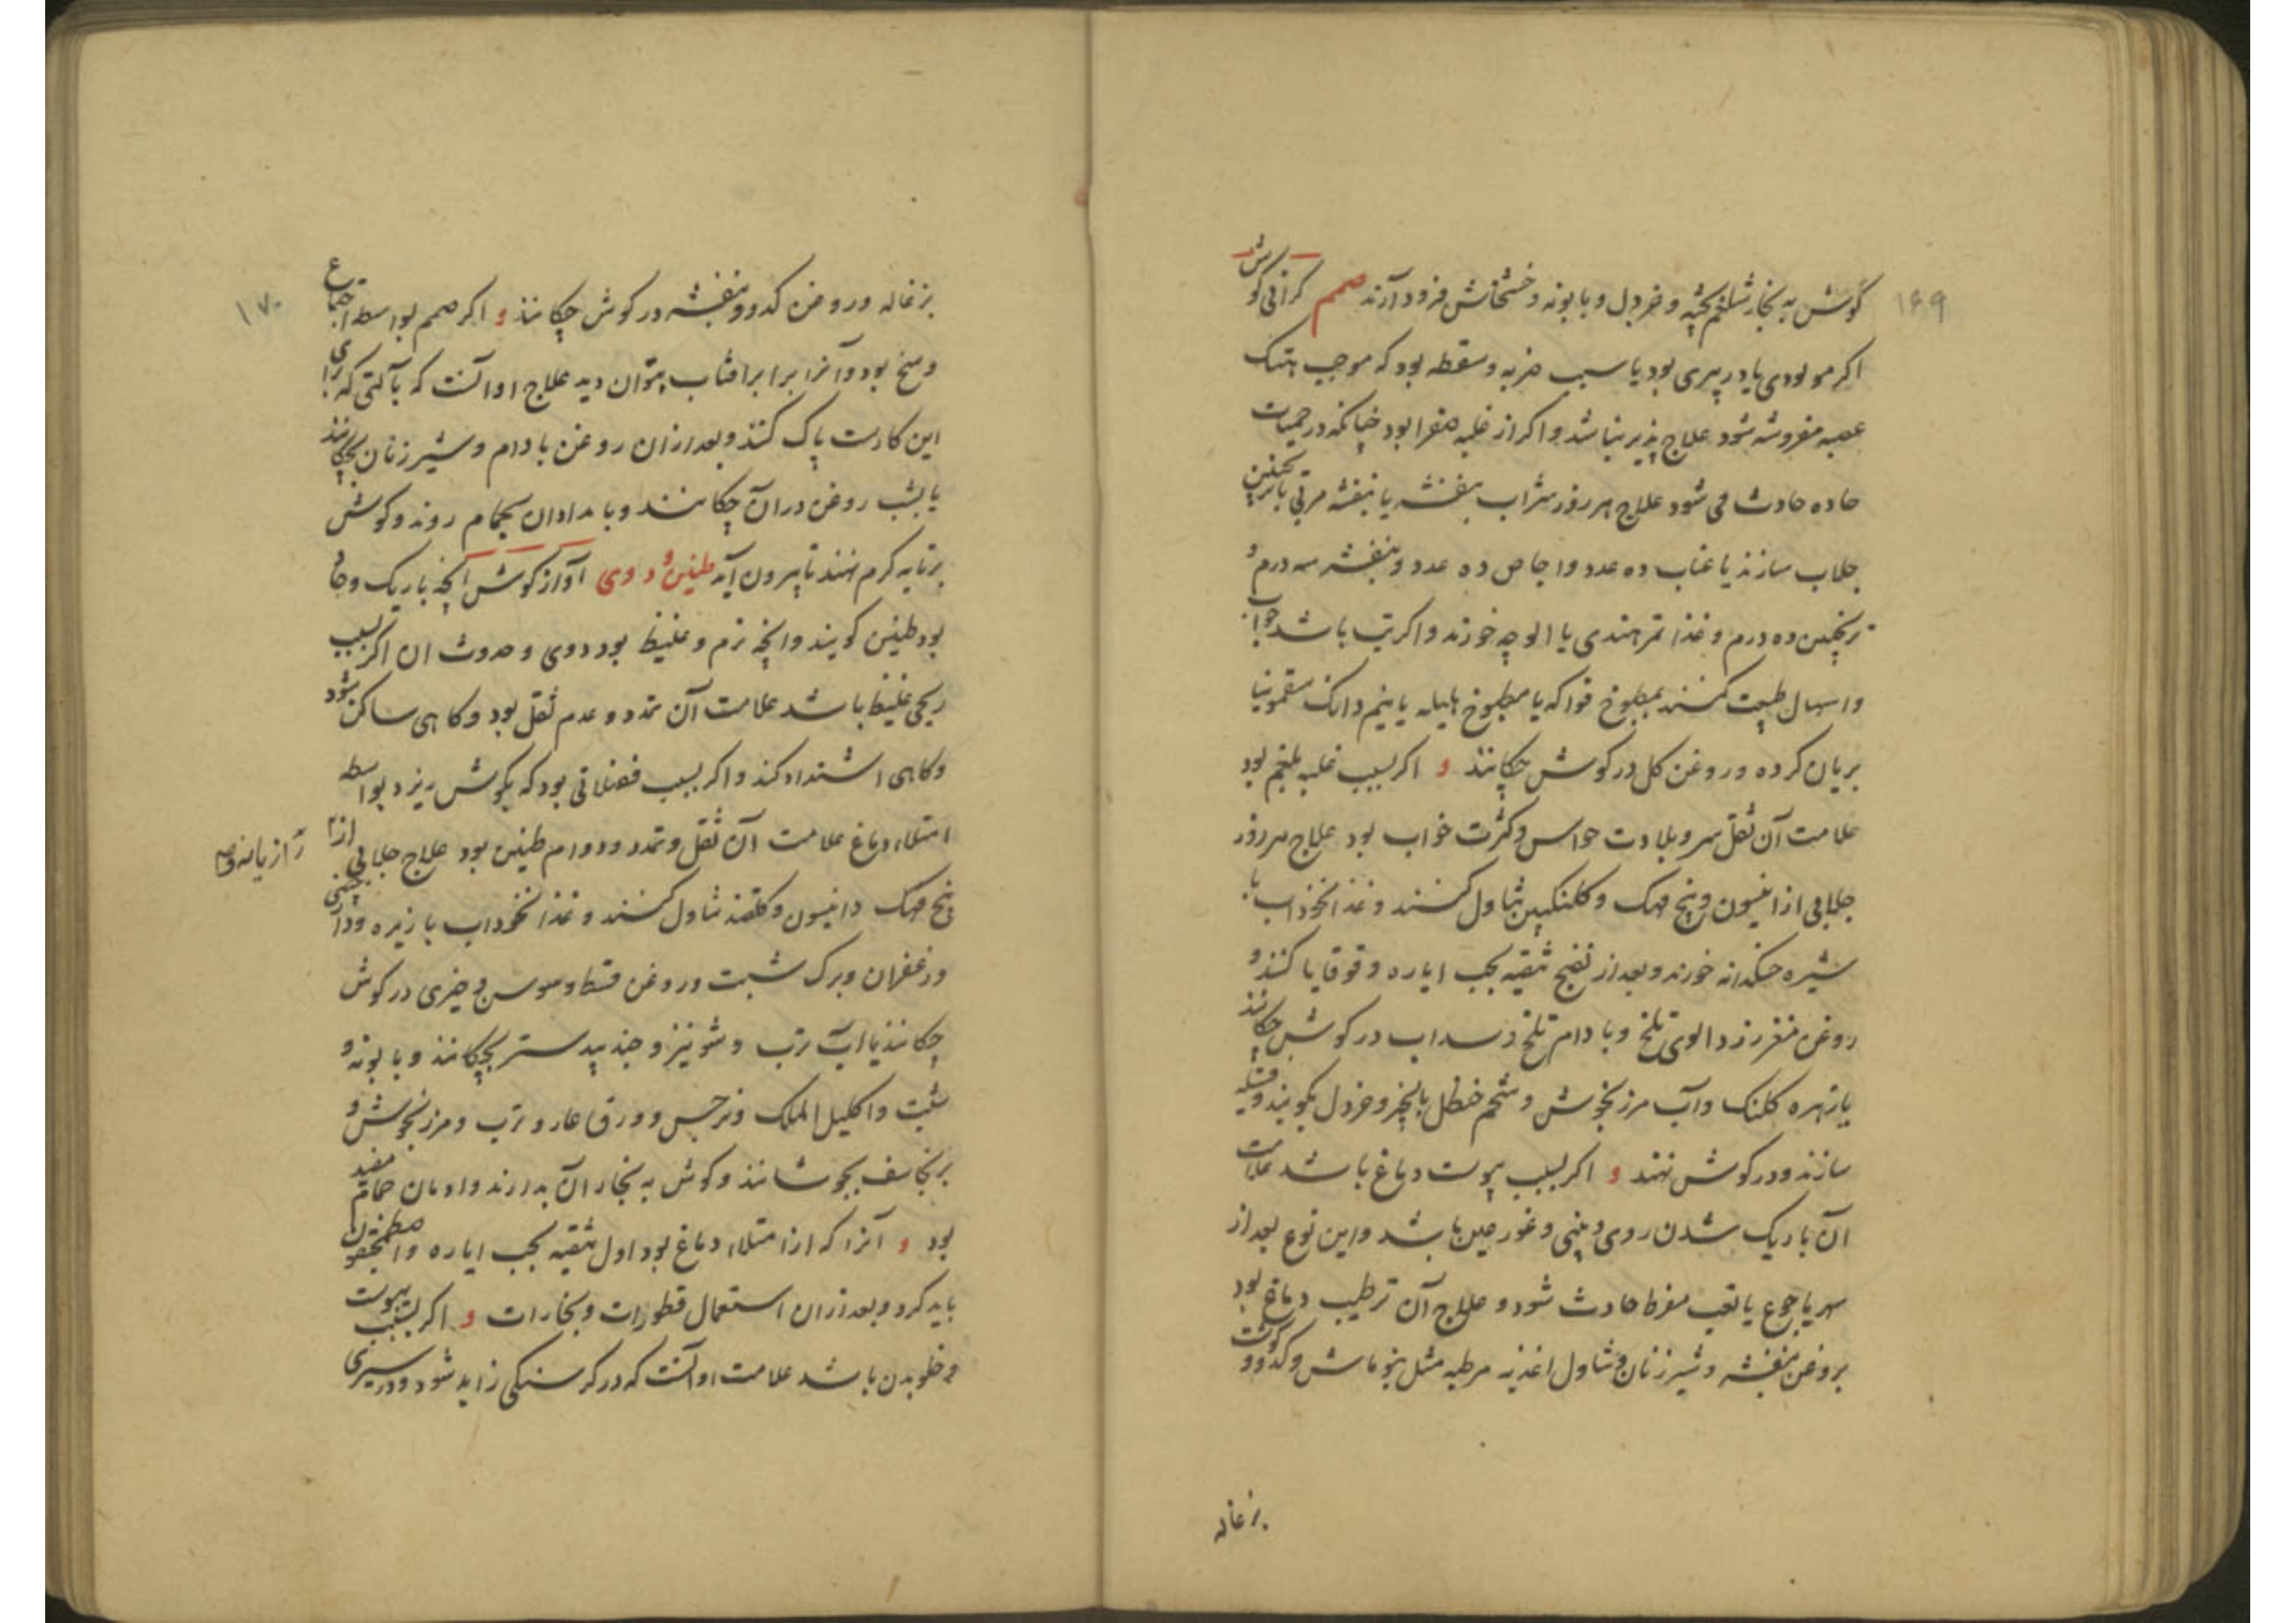 ۱۶۹
کوش به بخار شلغم پخته و خردل و بابونه و خشخاش فرود آرند صمم کرانی کوش
اکر مولودی یا در پیری بود یا سبب ضربه و سقطه بود که موجب هتک
عصبه مفروشه شود علاج پذیر نباشد و اکر از غلبه صفرا بود چنانکه در حمیات
حاده حادث می شود علاج هر روز شراب بنفشه یا بنفشه مربی با ترنجبین
جلاب سازند یا عناب ده عدد و اجاص ده عدد و بنفشه سه درم و
ترنجبین ده درم و غذا تمر هندی یا الوچه خورند و اکر تب باشد جواب
و اسهال طبیعت کنند بمطبوخ فواکه یا مطبوخ هلیله یا نیم دانک سقمونیا
بریان کرده و روغن کل در کوش چکانند و اکر بسبب غلبه بلغم بود
علامت آن ثقل سر و بلادت حواس و کثرت خواب بود علاج هر روز
جلابی از انیسون و بیخ مهک و کلنکبین تناول کنند و غذا نخوداب با
شیره خسکدانه خورند و بعد از نضج تنقیه بحب ایاره و قوقایا کنند و
روغن مغز زردالوی تلخ و بادام تلخ و سداب در کوش چکانند
یا زهره کلنک و آب مرزنجوش و شحم حنظل با انجیر و خردل بکوبند و فتیله
سازند و در کوش نهند و اکر بسبب یبوست دماغ باشد علامت
آن باریک شدن روی و بینی و غور عین باشد و این نوع بعد از
سهر یا جوع یا تعب مفرط حادث شود و علاج آن ترطیب دماغ بود
بروغن بنفشه و شیر زنان و تناول اغذیه مرطبه مثل بنو ماش و کدو و کوشت
بزغاله
۱۷۰
بزغاله و روغن کدو و بنفشه در کوش چکانند و اکر صمم بواسطه اجتماع
وسخ بود و آنرا برابر افتاب بتوان دید علاج او آنست که بآلتی که برای
این کارست پاک کنند و بعد ازان روغن بادام و شیر زنان بچکانند
یا بشب روغن دران چکانند و بامدادان بحمام روند و کوش
برتابه کرم نهند تا بیرون آید طنین و دوی آواز کوش آنچه باریک و حاد
بود طنین کویند و انچه نرم و غلیظ بود دوی و حدوث ان اکر بسبب
ریحی غلیظ باشد علامت آن تمدد و عدم ثقل بود و کاهی ساکن شود
و کاهی اشتداد کند و اکر بسبب فضلاتی بود که بکوش ریزد بواسطه
امتلاء دماغ علامت آن ثقل و تمدد و دوام طنین بود علاج جلابی از
رازیانه و
بیخ مهک و انیسون و کلقند تناول کنند و غذا نخوداب با زیره و دارچینی
و زعفران و برک شبت و روغن قسط و سوسن و خیری در کوش
چکانند یا اب ترب و شونیز و جندبیدستر بچکانند و بابونه و
شبت و اکلیل الملک و نرجس و ورق غار و ترب و مرزنجوش و
برنجاسف بجوشانند و کوش به بخار آن بدارند و ادمان حمام مفید
بود و آنرا که از امتلاء دماغ بود اول تنقیه بحب ایاره و اصطمخیقون
باید کرد و بعد ازان استعمال قطورات و بخارات و اکر بسبب یبوست
و خلو بدن باشد علامت او آنست که در کرسنکی زاید شود و در سیری